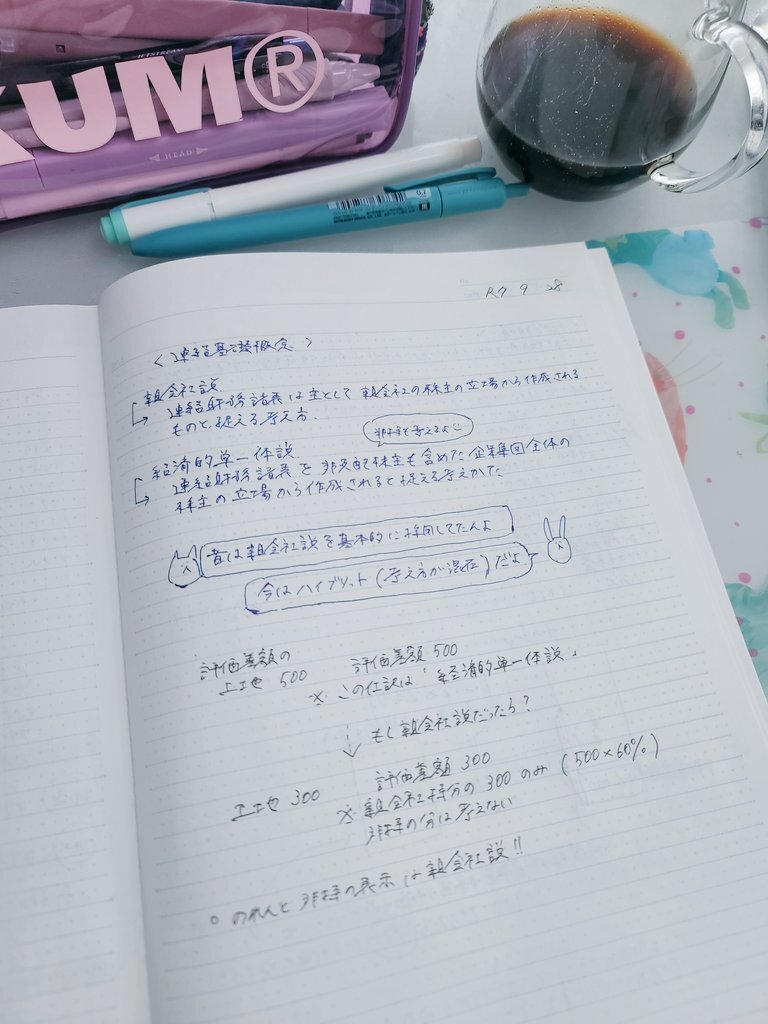 KUM®
JETSTREAM
HEAD
0.7
R7 9 28
〈連結基礎概念〉
親会社説
→ 連結財務諸表は主として親会社の株主の立場から作成される
ものと捉える考え方.
非持も考えるよ
経済的単一体説
→ 連結財務諸表を非支配株主も含めた企業集団全体の
株主の立場から作成されると捉える考えかた
昔は親会社説を基本的に採用してたんよ
今はハイブリット(考え方が混在)だよ
評価差額の
土地 500 評価差額 500
※ この仕訳は「経済的単一体説」
もし親会社説だったら?
土地 300 評価差額 300
※ 親会社持分の300のみ (500×60%)
非持の分は考えない
○ のれんと非持の表示は親会社説!!